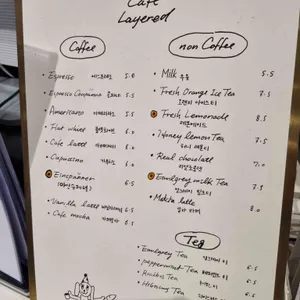 Cafe
Layered
Coffee
Espresso 에스프레소 5.0
Espresso Conpanna
Americano 아메리카노
Flat white 플랫화이트 6.0
Cafe latte 카페라떼
Cappucino 카푸치노
Einspänner 6.5
Vanilla latte 바닐라라떼 6.5
Cafe mocha 카페모카
non Coffee
Milk 우유 5.5
Fresh Orange Ice Tea 7.5
오렌지 아이스티
Fresh Lemonade 8.5
레몬에이드
Honey lemon Tea 7.5
허니 레몬티
Real chocolatl 7.0
Earlgrey milk Tea
얼그레이 밀크티
Matcha latte
말차 라떼
Tea
Earlgrey Tea 얼그레이 티
peppermint Tea 페퍼민트 티
Rooibos Tea 루이보스
6.5